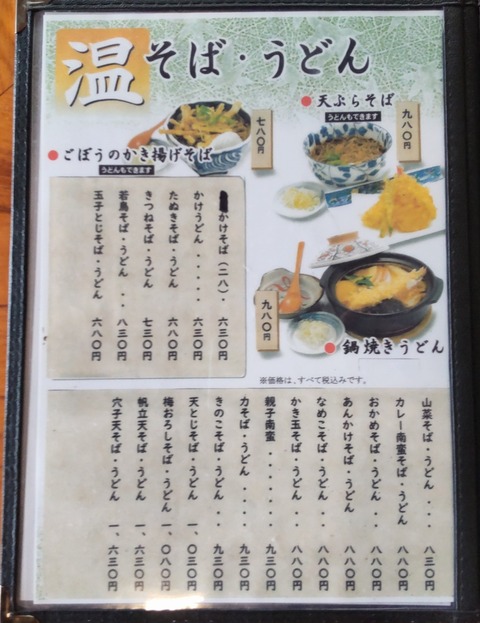 温 そば・うどん
天ぷらそば
うどんもできます
九八〇円
ごぼうのかき揚げそば
うどんもできます
七八〇円
鍋焼きうどん
九八〇円
かけそば（二八）・ 六三〇円
かけうどん ・・・・・ 六三〇円
たぬきそば・うどん 六八〇円
きつねそば・うどん 七三〇円
若鳥そば・うどん ・・ 八三〇円
玉子とじそば・うどん 六八〇円
※価格は、すべて税込みです。
山菜そば・うどん ・・・ 八三〇円
カレー南蛮そば・うどん 八八〇円
おかめそば・うどん ・・ 八八〇円
あんかけそば・うどん 八八〇円
なめこそば・うどん ・・ 八八〇円
かき玉そば・うどん ・・ 八八〇円
親子南蛮 ・・・・・・・ 九三〇円
力そば・うどん ・・・・ 九三〇円
きのこそば・うどん ・・ 九三〇円
天とじそば・うどん 一、〇三〇円
梅おろしそば・うどん 一、〇八〇円
帆立天そば・うどん 一、六三〇円
穴子天そば・うどん 一、六三〇円